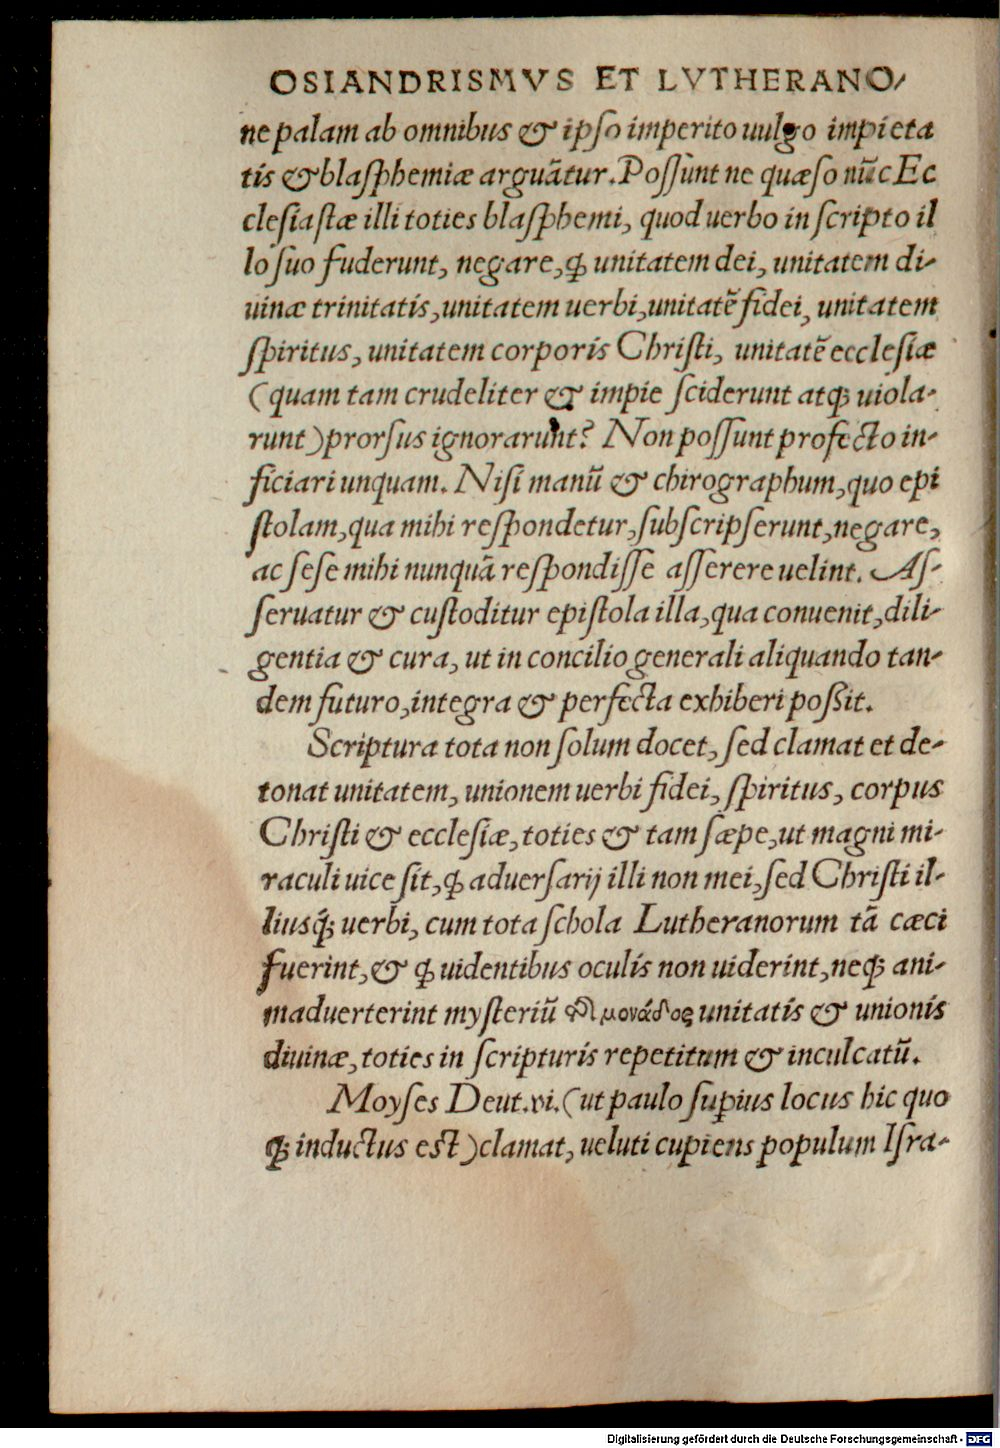 OSIANDRISMVS ET LVTHERANO⸗
ne palam ab omnibus & ipſo imperito uulgo impieta
tis & blaſphemiæ arguãtur. Poſſunt ne quæſo nũc Ec
cleſiaſtæ illi toties blaſphemi, quod uerbo in ſcripto il
lo ſuo fuderunt, negare, ꝙ unitatem dei, unitatem di⸗
uinæ trinitatis, unitatem uerbi, unitatẽ fidei, unitatem
ſpiritus, unitatem corporis Chriſti, unitatẽ eccleſiæ
(quam tam crudeliter & impie ſciderunt atqꝫ uiola⸗
runt) prorſus ignorarunt? Non poſſunt profecto in⸗
ficiari unquam. Niſi manũ & chirographum, quo epi
ſtolam, qua mihi reſpondetur, ſubſcripſerunt, negare,
ac ſeſe mihi nunquã reſpondiſſe aſſerere uelint. Aſ⸗
ſeruatur & cuſtoditur epiſtola illa, qua conuenit, dili⸗
gentia & cura, ut in concilio generali aliquando tan⸗
dem futuro, integra & perfecta exhiberi poßit.
Scriptura tota non ſolum docet, ſed clamat et de⸗
tonat unitatem, unionem uerbi fidei, ſpiritus, corpus
Chriſti & eccleſiæ, toties & tam ſæpe, ut magni mi⸗
raculi uice ſit, ꝙ aduerſarij illi non mei, ſed Chriſti il⸗
liusqꝫ́ uerbi, cum tota ſchola Lutheranorum tã cæci
fuerint, & ꝙ uidentibus oculis non uiderint, neqꝫ ani⸗
maduerterint myſteriũ τῆς μονάδος unitatis & unionis
diuinæ, toties in ſcripturis repetitum & inculcatũ.
Moyſes Deut. vi. (ut paulo ſuꝑius locus hic quo
qꝫ inductus eſt) clamat, ueluti cupiens populum Iſra⸗
Digitalisierung gefördert durch die Deutsche Forschungsgemeinschaft - DFG